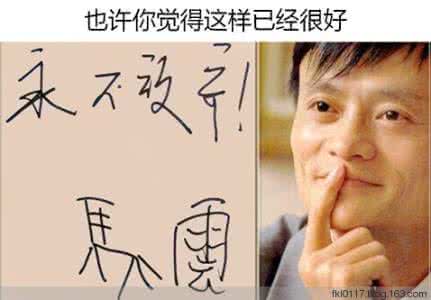 也许你觉得这样已经很好
永不放弃!
馬雲
fkl0117.blog.163.com